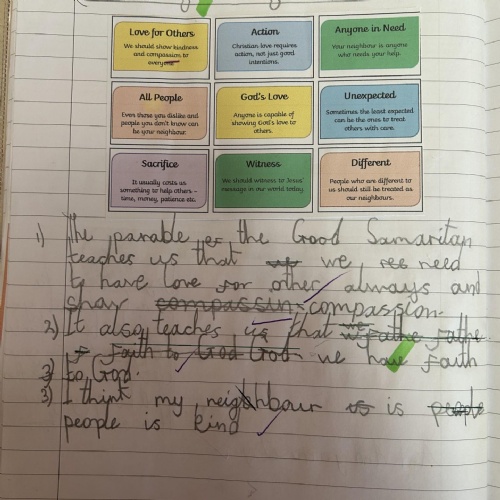 Love for Others
We should show kindness
and compassion to
everyone.
Action
Christian love requires
action, not just good
intentions.
Anyone in Need
Your neighbour is anyone
who needs your help.
All People
Even those you dislike and
people you don't know can
be your neighbour.
God's Love
Anyone is capable of
showing God's love to
others.
Unexpected
Sometimes the least expected
can be the ones to treat
others with care.
Sacrifice
It usually costs us
something to help others –
time, money, patience etc.
Witness
We should witness to Jesus'
message in our world today.
Different
People who are different to
us should still be treated as
our neighbours.
1) The parable of the Good Samaritan
teaches us that we need
to have love for other always and
show compassin compassion.
2) It also teaches us that we
faith to God God we have faith
3) to God.
3) I think my neighbour is is people
people is kind